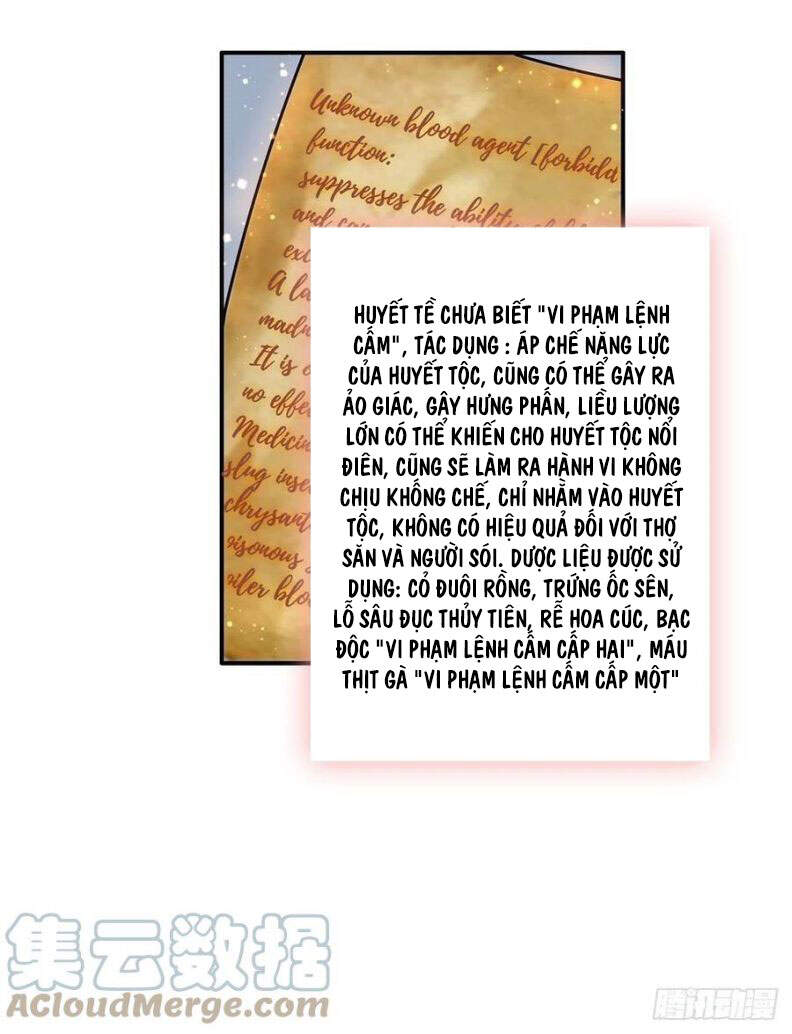 Unknown blood agent [forbidd
function:
suppresses the ability
and
exc
A la
madn
It is
no effe
Medicin
slug inse
chrysant
oisonous
iler blo
HUYẾT TỀ CHƯA BIẾT "VI PHẠM LỆNH
CẤM", TÁC DỤNG : ÁP CHẾ NĂNG LỰC
CỦA HUYẾT TỘC, CŨNG CÓ THỂ GÂY RA
ẢO GIÁC, GÂY HƯNG PHẤN, LIỀU LƯỢNG
LỚN CÓ THỂ KHIẾN CHO HUYẾT TỘC NỔI
ĐIÊN, CŨNG SẼ LÀM RA HÀNH VI KHÔNG
CHỊU KHỐNG CHẾ, CHỈ NHẰM VÀO HUYẾT
TỘC, KHÔNG CÓ HIỆU QUẢ ĐỐI VỚI THỢ
SĂN VÀ NGƯỜI SÓI. DƯỢC LIỆU ĐƯỢC SỬ
DỤNG: CỎ ĐUÔI RỒNG, TRỨNG ỐC SÊN,
LỖ SÂU ĐỤC THỦY TIÊN, RỄ HOA CÚC, BẠC
ĐỘC "VI PHẠM LỆNH CẤM CẤP HAI", MÁU
THỊT GÀ "VI PHẠM LỆNH CẤM CẤP MỘT"
集云数据
ACloudMerge.com
腾讯动漫